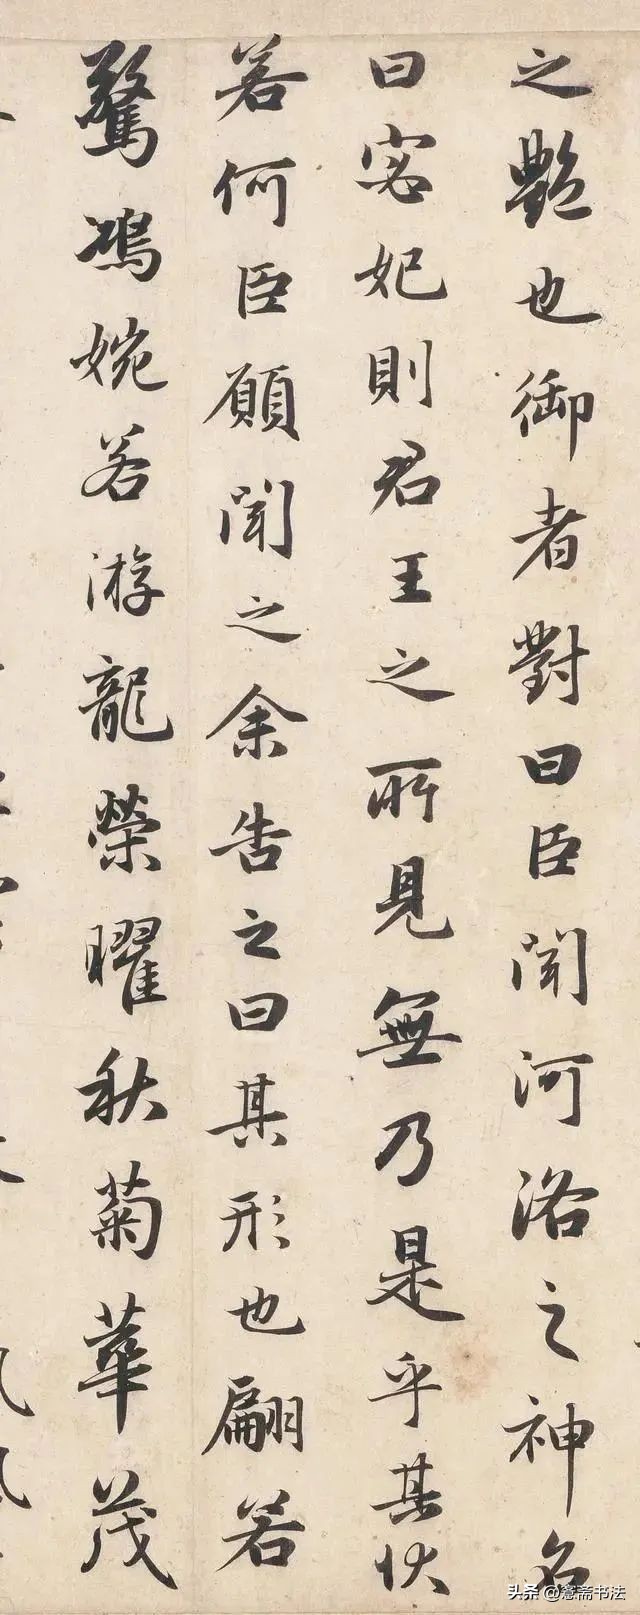 之艷也御者對曰臣聞河洛之神名
曰宓妃則君王之所見無乃是乎其狀
若何臣願聞之余告之曰其形也翩若
驚鴻婉若游龍榮曜秋菊華茂
头条@意斋书法